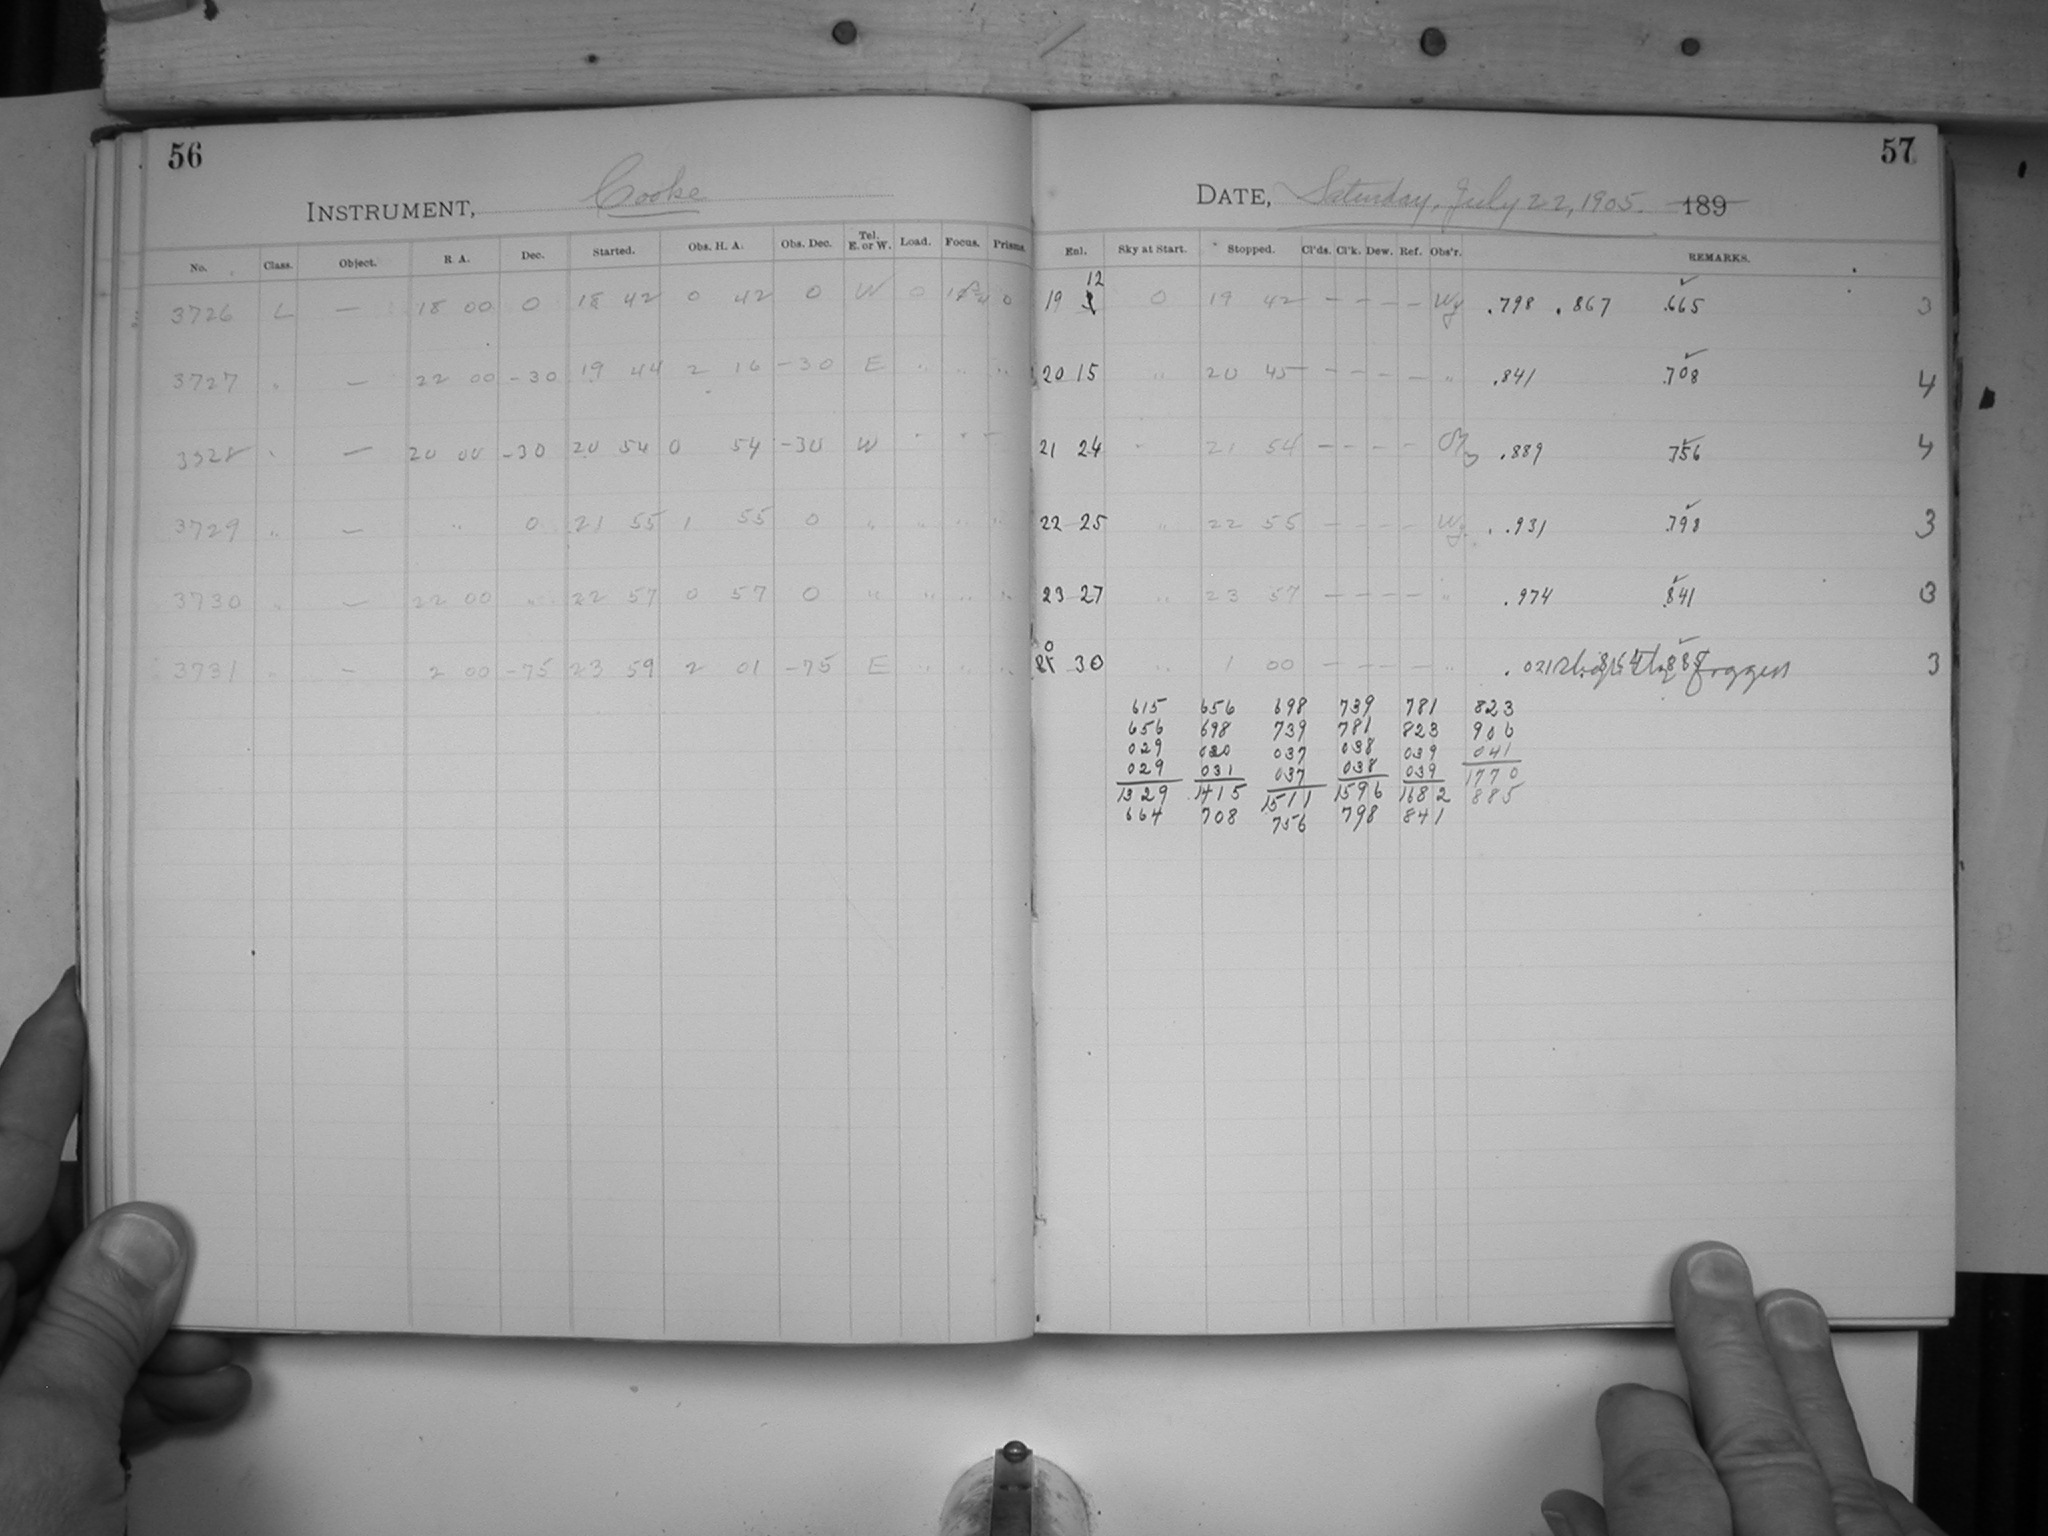 56
INSTRUMENT, Cooke
No. Class. Object. R. A. Dec. Started. Obs. H. A. Obs. Dec. Tel. E. or W. Load. Focus. Prisms.
3726 L — 18 00 0 18 42 0 42 0 W 0 0
3727 " — 22 00 -30 19 44 2 16 -30 E " " "
3728 " — 20 00 -30 20 54 0 54 -30 W " " "
3729 " — " 0 21 55 1 55 0 " " " "
3730 " — 22 00 " 22 57 0 57 0 " " " "
3731 " — 2 00 -75 23 59 2 01 -75 E " " "
57
DATE, Saturday, July 22, 1905. 189
Enl. Sky at Start. Stopped. Cl'ds. Cl'k. Dew. Ref. Obs'r. REMARKS.
19 12 0 19 42 — — — — Wy .798 .867 .665 ✓ 3
20 15 " 20 45 — — — — " .841 .708 ✓ 4
21 24 " 21 54 — — — — .889 .756 ✓ 4
22 25 " 22 55 — — — — Wy. .931 .798 ✓ 3
23 27 " 23 57 — — — — " .974 .841 ✓ 3
0 30 " 1 00 — — — — " .021 Slightly foggy 3
615 656 698 739 781 823
656 698 739 781 823 906
029 030 037 038 039 041
029 031 037 038 039 1770
1329 1415 1511 1596 1682 885
664 708 756 798 841